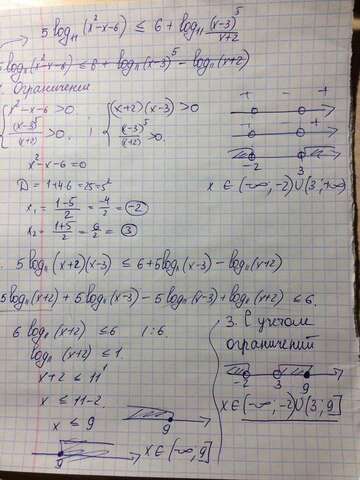 5 log₁₁ (x²-x-6) ≤ 6 + log₁₁ (x-3)⁵/(x+2)
5 log₁₁(x²-x-6) ≤ 6 + log₁₁(x-3)⁵ - log₁₁(x+2)
1. Ограничения
{ x²-x-6 >0 ; (x-3)⁵/(x+2) >0. ; { (x+2)(x-3) >0 ; (x-3)⁵/(x+2) >0.
+ - +
+ - +
-2 3
x²-x-6=0
D = 1+4·6 =25=5²
x₁ = (1-5)/2 = -4/2 = -2
x₂ = (1+5)/2 = 6/2 = 3
x ∈ (-∞;-2)∪(3;+∞)
5 log₁₁ (x+2)(x-3) ≤ 6+5log₁₁(x-3) - log₁₁(x+2)
5log₁₁(x+2) + 5log₁₁(x-3) - 5log₁₁(x-3)+log₁₁(x+2) ≤ 6.
6 log₁₁ (x+2) ≤6 /:6
log₁₁ (x+2) ≤ 1
x+2 ≤ 11¹
x ≤ 11-2
x ≤ 9
9
9
x∈(-∞;9]
3. С учетом
ограничений
-2 3 9
x∈(-∞;-2)∪(3;9]